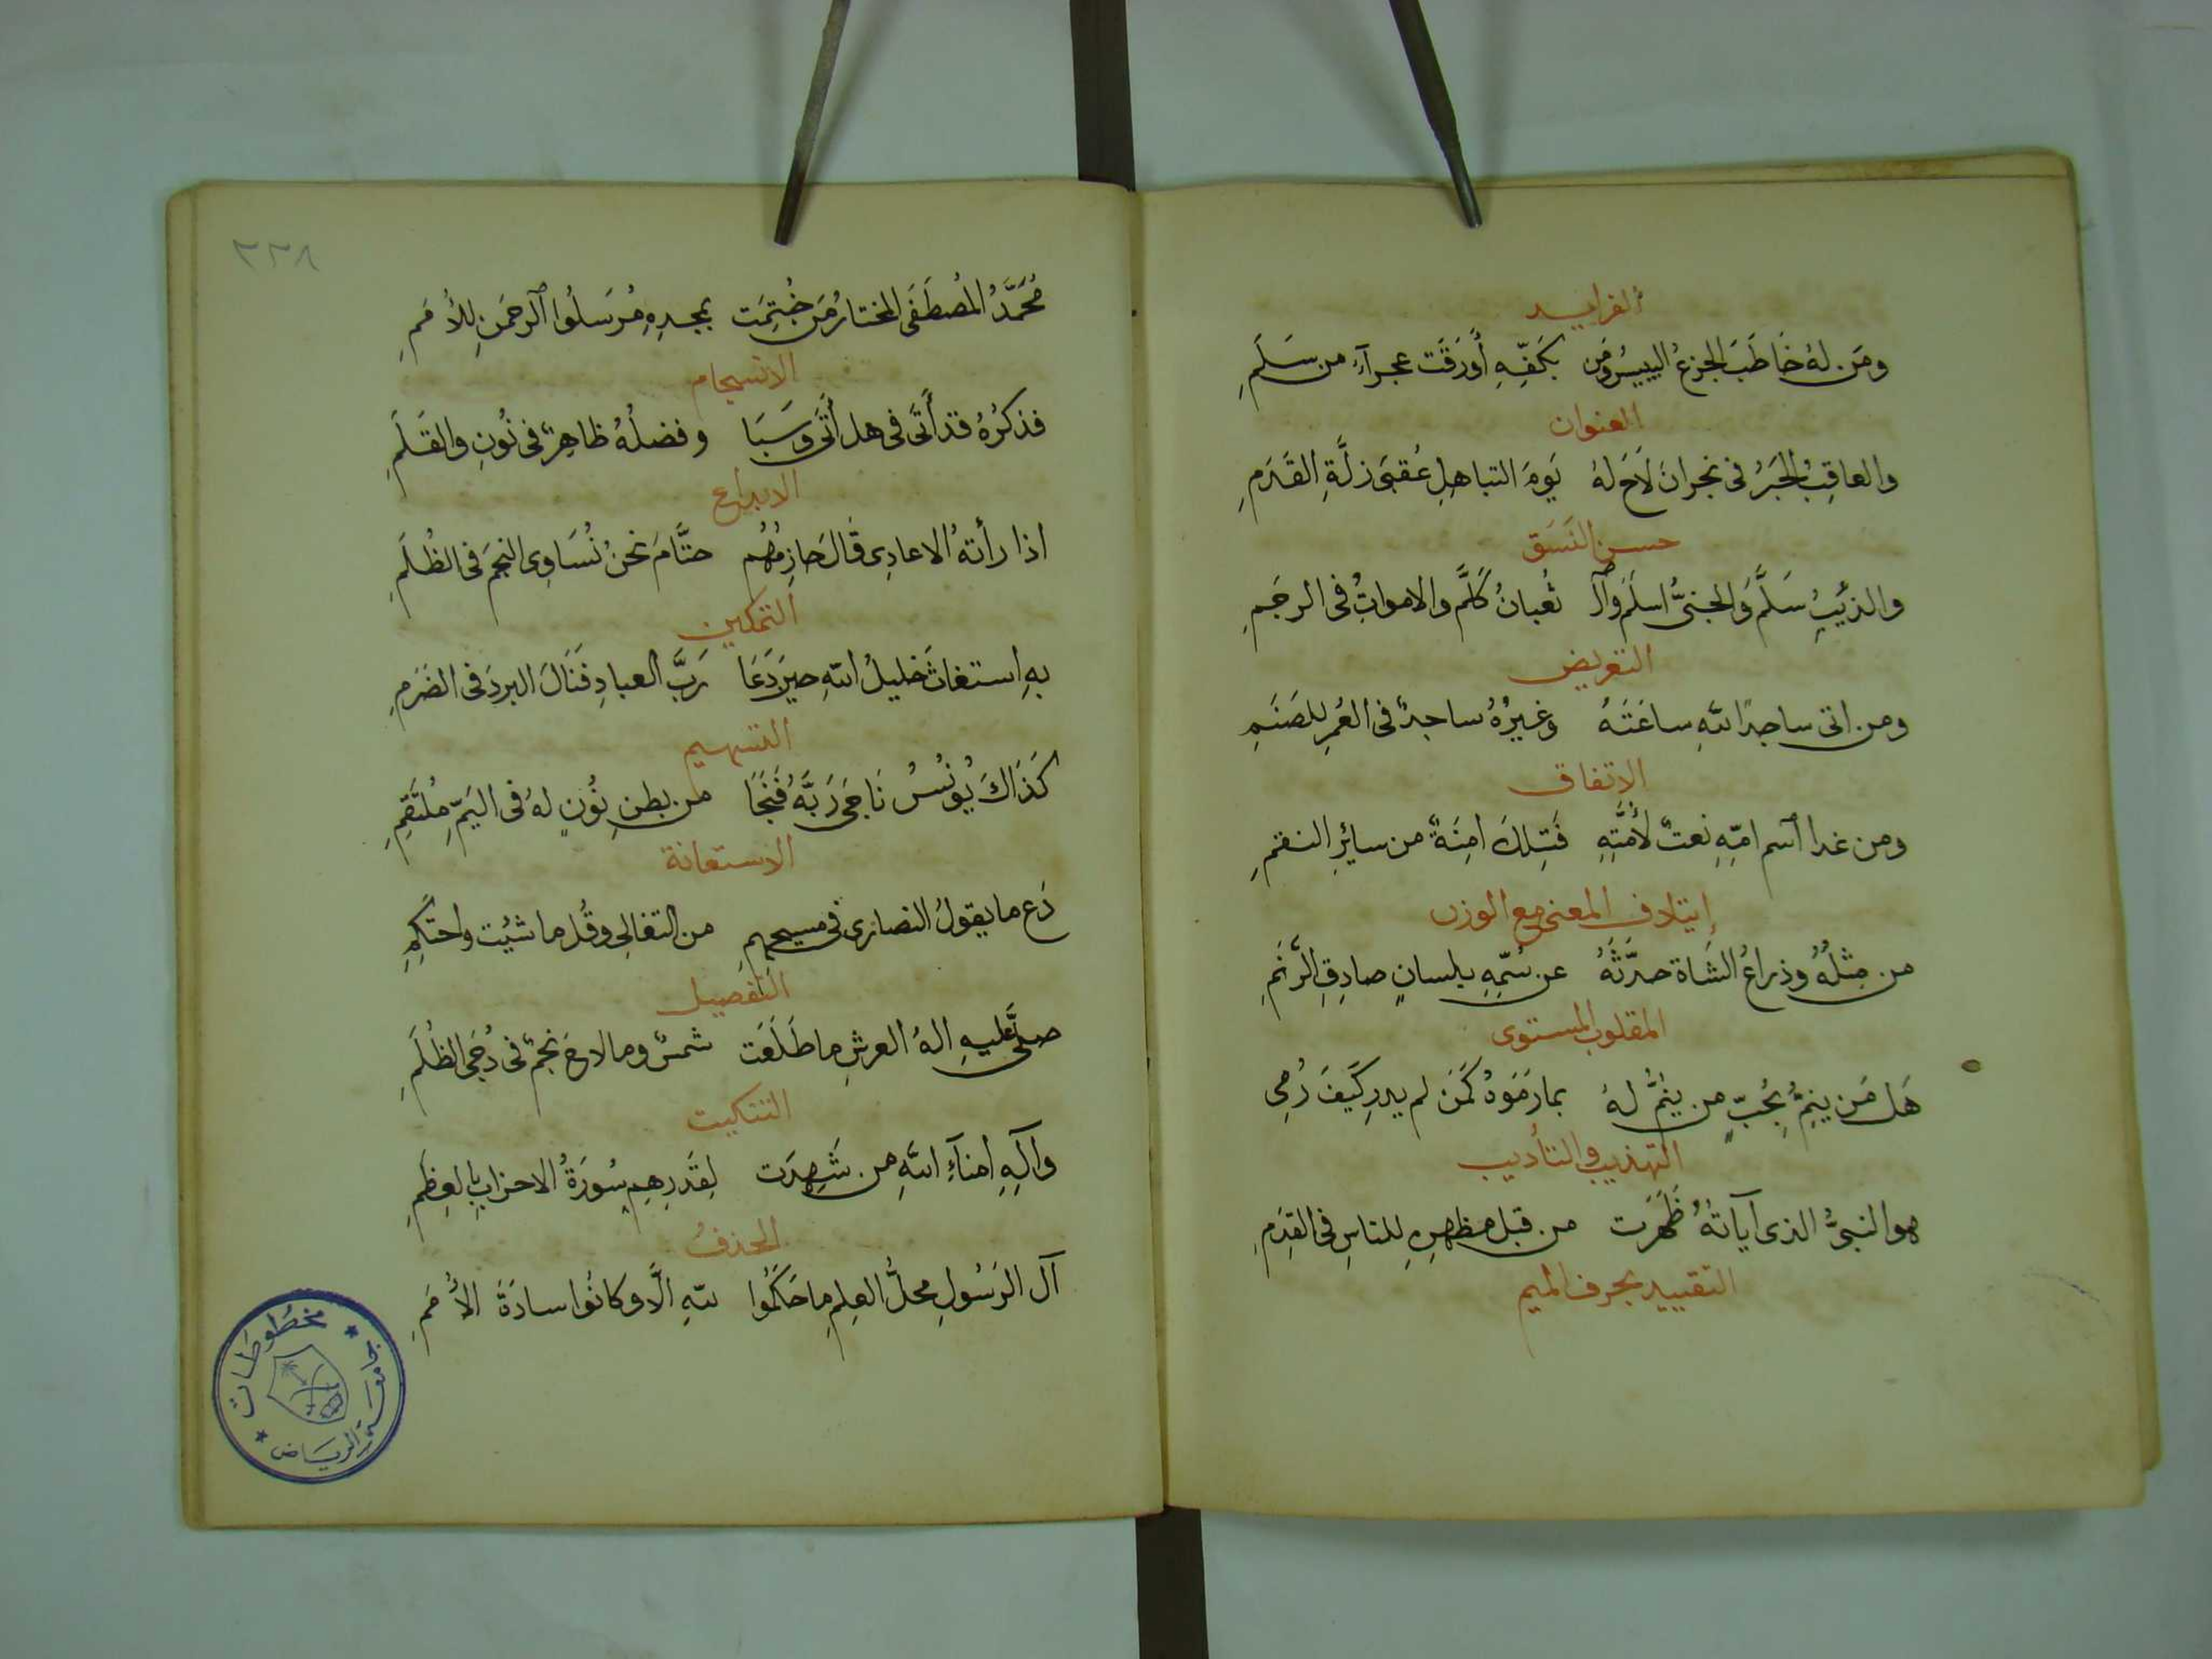 الفرايد
ومَن لهُ خَاطَبَ الجزعُ اليبيسُ ومَن بكفِّهِ أورَقَت عجرآءُ من سَلَمِ
العنوان
والعاقِبُ الحَبرُ في نجرانَ لاحَ لهُ يَومَ التباهلِ عُقبَى زلَّةِ القَدَمِ
حسن النَسَق
والذئيبُ سَلَّمَ والجنىُّ اسلَمَ والـ ثعبانُ كلَّمَ والامواتُ في الرجَمِ
التعريض
ومن اتى ساجدًا للهِ ساعَتَهُ وغيرُهُ ساجدٌ في العُمرِ للصَنَمِ
الاتفاق
ومن غدا اسم امّهِ نعتٌ لأُمَّتِهِ فَتِلكَ امِنَةٌ من سايرِ النقمِ
إيتلاف المعنى مع الوزن
من مِثلُهُ وذراعُ الشَاة حدَّثَهُ عن سُمّهِ بلسانٍ صادِقِ الرَّنَمِ
المقلوب المستوى
هَل مَن ينِمُّ بحُبٍّ من ينُمُّ لهُ بما رَمَوهُ كمَن لم يدرِ كَيفَ رُمِى
التهذيب والتأديب
هو النبىُّ الذى آياتهُ ظَهَرَت من قبل مظهرِهِ للناسِ في القِدَمِ
التقييد بحرف الميم
٢٣٨
مُحَمَّدُ المُصطَفَى المختارُ مَن خُتِمَت بمجدِهِ مُرسَلُوا الرحمَنِ للأُممِ
الانسجام
فذكرُهُ قد أَتَى في هل أَتَى وسَبَا وفضلُهُ ظاهِرٌ في نُونِ والقَلَمِ
الابداع
اذا رأتهُ الاعادِى قالَ حازِمُهُم حتَّامَ نحنُ نُسَاوِى النجمَ في الظُلَمِ
التمكين
بهِ استغاثَ خليلُ اللهِ حينَ دَعَا رَبَّ العبادِ فَنَالَ البردَ في الضَرَمِ
التسهيم
كَذَاكَ يُونُسُ نَاجَى رَبَّهُ فَنَجَا من بطنِ نُونٍ لهُ في اليَمِّ مُلتَقِمِ
الاستعانة
دَع ما يقولُ النصارى في مسيحهم من التغالِى وقُل ما شيُت واحتَكِمِ
التفصيل
صلَّى عليهِ الهُ العرشِ ما طَلَعَت شمسٌ وما لاحَ نجمٌ في دُجَى الظُلَمِ
التنكيت
وآلِهِ امنآءِ اللهِ من شَهِدَت لِقَدرِهِم سُورَةُ الاحزابِ بالعِظَمِ
الحذفُ
آل الرَسُولِ محلُّ العِلمِ ما حَكَمُوا للهِ الَّا وكانُوا سادَةَ الأُمَمِ
مخطوطات
جامعة الرياض